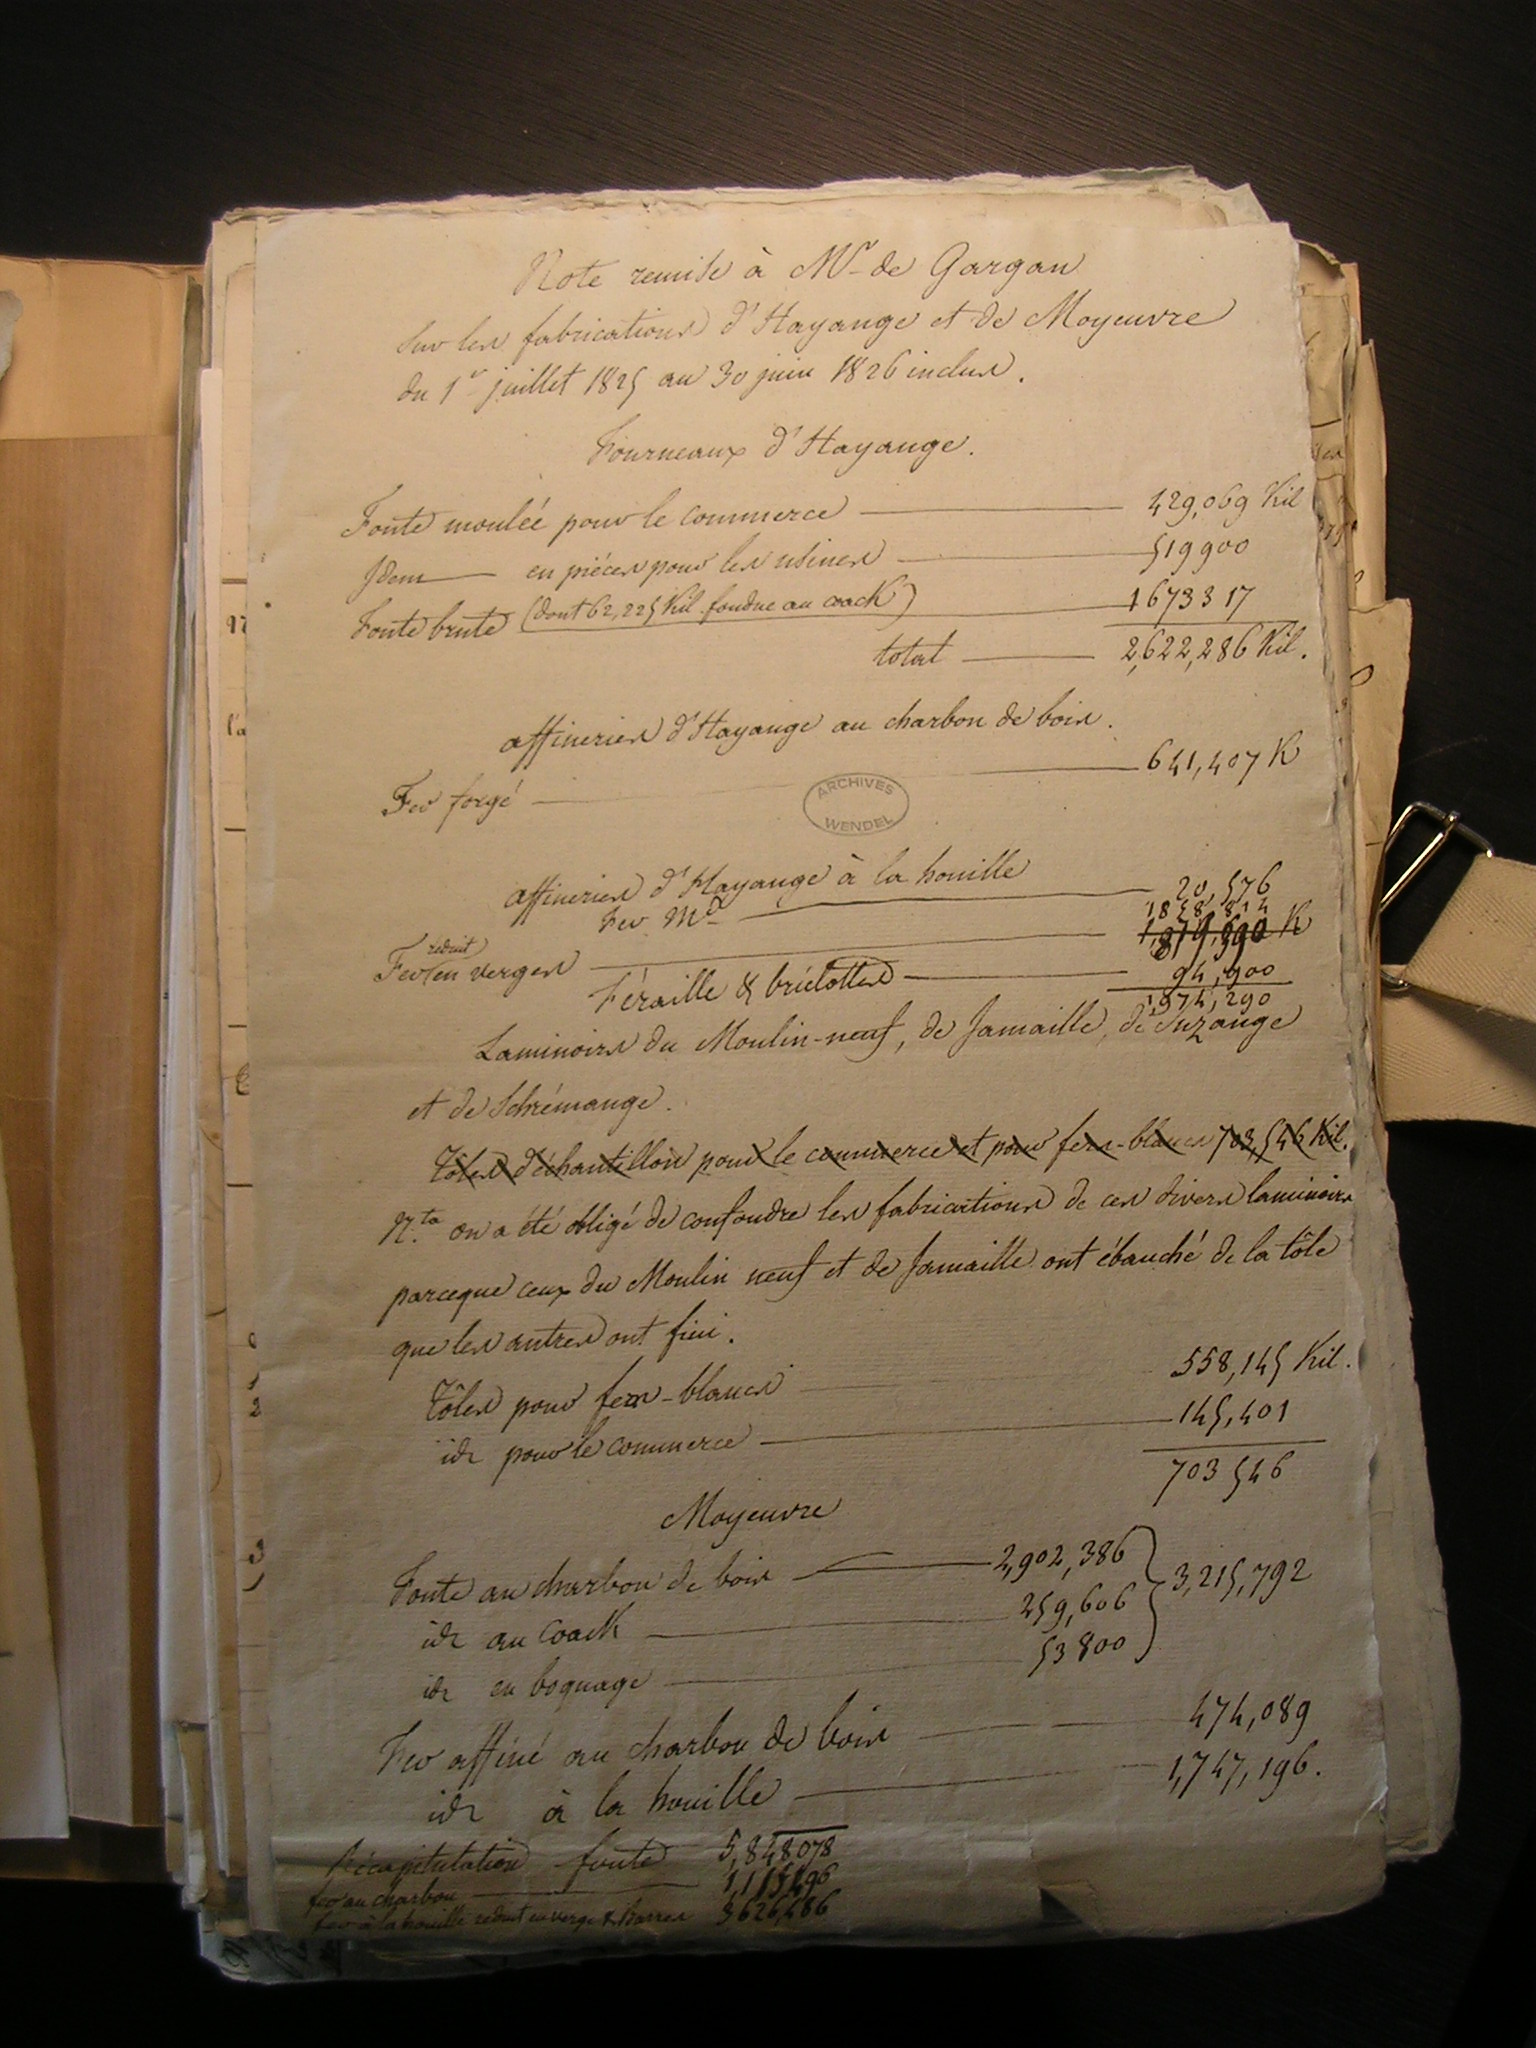 Note remise à Mr de Gargan
sur les fabrications d'Hayange et de Moyeuvre
du 1er juillet 1825 au 30 juin 1826 inclus.
Fourneaux d'Hayange.
Fonte moulée pour le commerce 429,069 Kil
Idem en piéces pour les usines 519900
Fonte brute (dont 62,225 Kil. fondue au coack) 1673317
total 2,622,286 Kil.
affineries d'Hayange au charbon de bois.
Fer forgé 641,407 K
ARCHIVES
WENDEL
affineries d'Hayange à la houille
Fer Md 20,576
1858 814
Fer réduit en verges 1,879,390 K
Féraille & briclottes 94,900
1974,290
Laminoirs du Moulin-neuf, de Jamaille, de Suzange
et de Schrémange.
Tôles d'échantillon pour le commerce et pour fers-blancs 703,546 Kil.
N.ta on a été obligé de confondre les fabrications de ces divers laminoirs
parceque ceux du Moulin neuf et de Jamaille ont ébauché de la tôle
que les autres ont fini.
Tôles pour fers-blancs 558,145 Kil.
id pour le commerce 145,401
703 546
Moyeuvre
Fonte au charbon de bois 2,902,386
id au coack 259,606 3,215,792
id en boquage 53800
Fer affiné au charbon de bois 474,089
id à la houille 1,747,196.
Récapitulation fonte 5,848078
fer au charbon 1,115,496
fer à la houille réduit en verge & Barres 3626,486